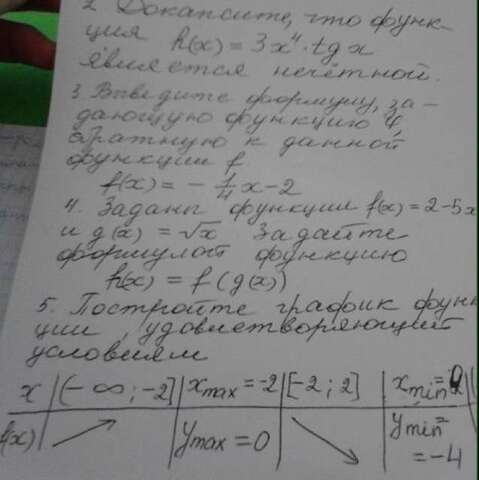 2. Докажите, что функ-
ция h(x) = 3x⁴ · tg x
является нечётной.
3. Выведите формулу, за-
дающую функцию φ,
обратную к данной
функции f
f(x) = - 1/4 x - 2
4. Заданы функции f(x) = 2 - 5x
и g(x) = √x Задайте
формулой функцию
h(x) = f(g(x))
5. Постройте график функ
ции, удовлетворяющий
условиям
x (-∞; -2] xmax = -2 [-2; 2] xmin =
f(x) ↗ ymax = 0 ↘ ymin = -4